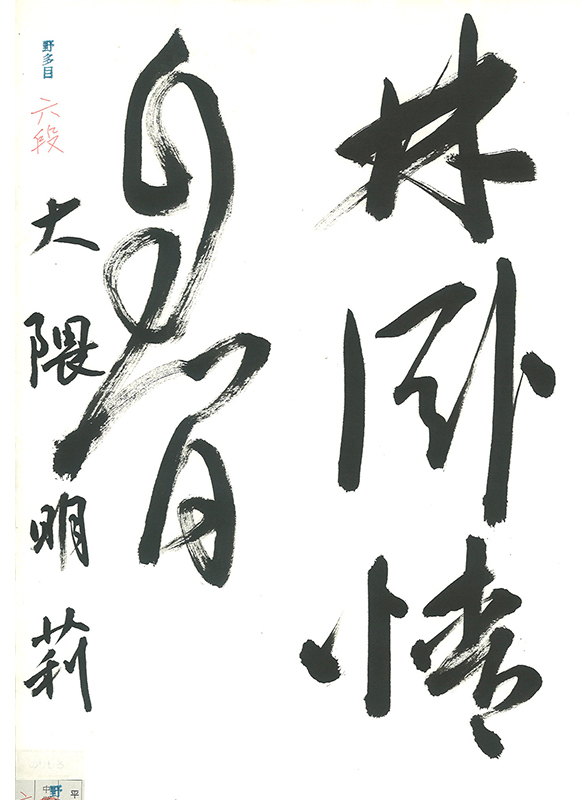 林臥情
閒
野多目
六段
大隈明莉
野
中
平